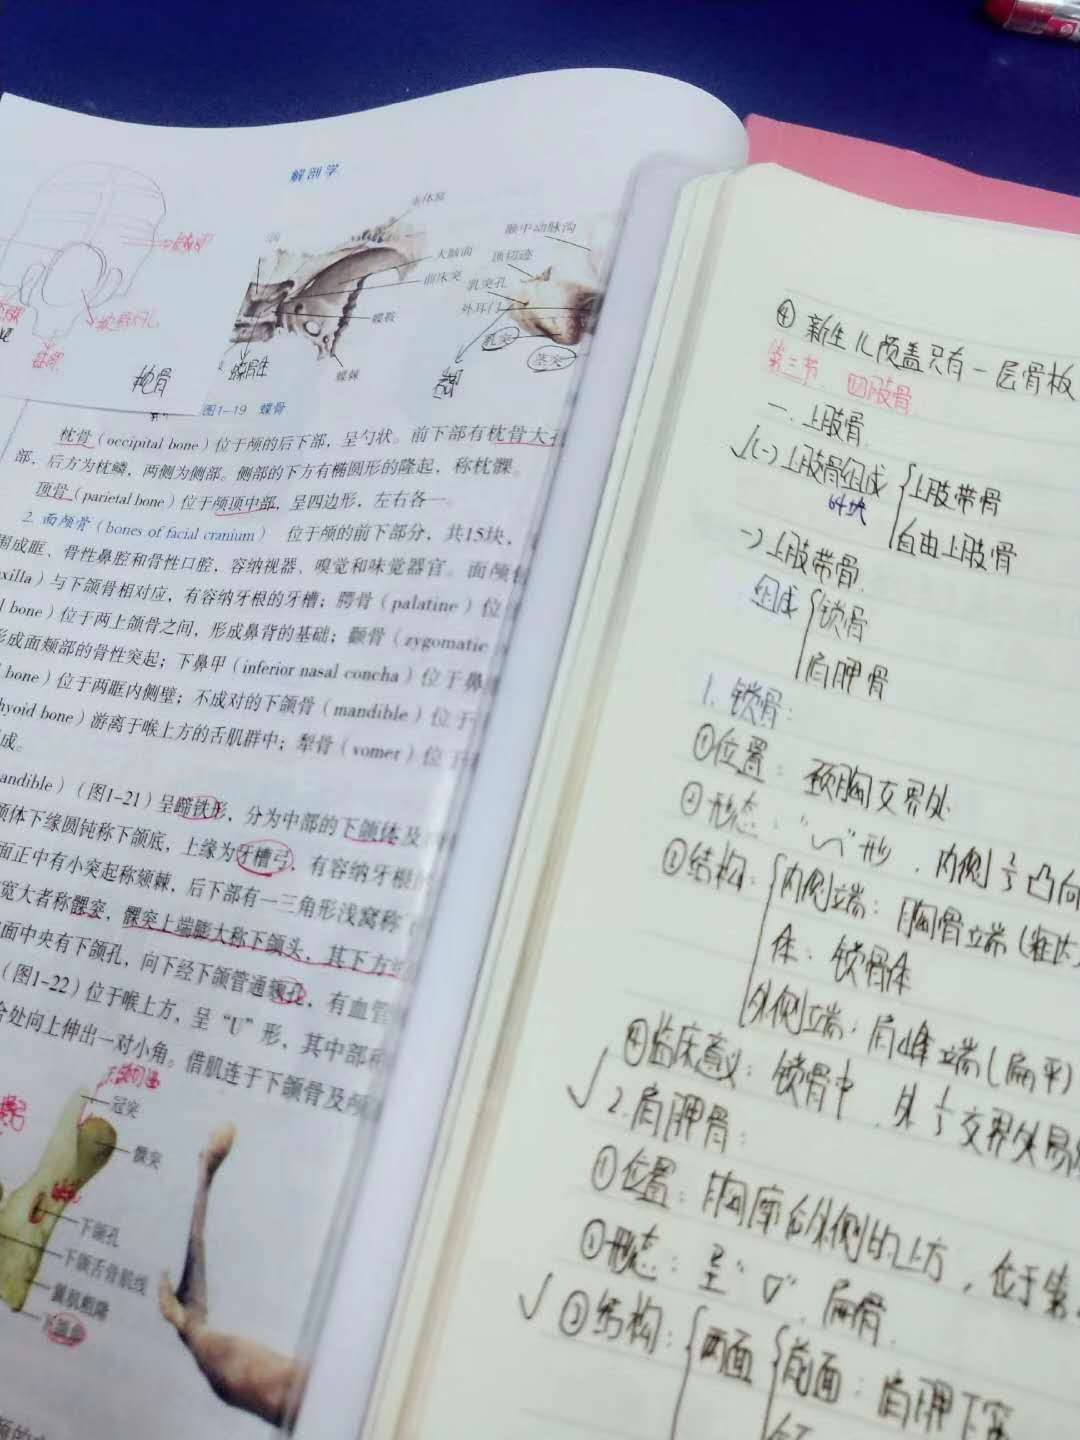 解剖学
水体窝
大脑面
前床突
蝶鞍
蝶棘
蝶骨
脑中动脉沟
顶切迹
乳突孔
外耳门
乳突
茎突
枕骨
图1-19 蝶骨
枕骨（occipital bone）位于颅的后下部，呈勺状。前下部有枕骨大孔
部，后方为枕鳞，两侧为侧部。侧部的下方有椭圆形的隆起，称枕髁。
顶骨（parietal bone）位于颅顶中部，呈四边形，左右各一。
2. 面颅骨（bones of facial cranium） 位于颅的前下部分，共15块，
围成眶、骨性鼻腔和骨性口腔，容纳视器、嗅觉和味觉器官。面颅
xilla）与下颌骨相对应，有容纳牙根的牙槽；腭骨（palatine）位
l bone）位于两上颌骨之间，形成鼻背的基础；颧骨（zygomatic
形成面颊部的骨性突起；下鼻甲（inferior nasal concha）位于鼻
bone）位于两眶内侧壁；不成对的下颌骨（mandible）位于
hyoid bone）游离于喉上方的舌肌群中；犁骨（vomer）位于
成。
andible）（图1-21）呈蹄铁形，分为中部的下颌体及
颌体下缘圆钝称下颌底，上缘为牙槽弓，有容纳牙根
面正中有小突起称颏棘，后下部有一三角形浅窝称
宽大者称髁突，髁突上端膨大称下颌头，其下方
面中央有下颌孔，向下经下颌管通颏孔，有血管
（图1-22）位于喉上方，呈“U”形，其中部称
合处向上伸出一对小角。借肌连于下颌骨及颅
下颌切迹
冠突
髁突
下颌孔
下颌舌骨肌线
翼肌粗隆
④ 新生儿颅盖只有一层骨板
第三节 四肢骨
一. 上肢骨
(一) 上肢骨组成 上肢带骨
64块
自由上肢骨
上肢带骨
组成 锁骨
肩胛骨
1. 锁骨：
①位置：颈胸交界处
②形态：“～”形，内侧 凸向
③结构：内侧端：胸骨端（粗大）
体：锁骨体
外侧端：肩峰端（扁平）
④临床意义：锁骨中、外⅓交界处易
2. 肩胛骨：
①位置：胸廓后外侧的上方，位于第
②形态：呈“▽”扁骨
③结构：两面 前面：肩胛下窝